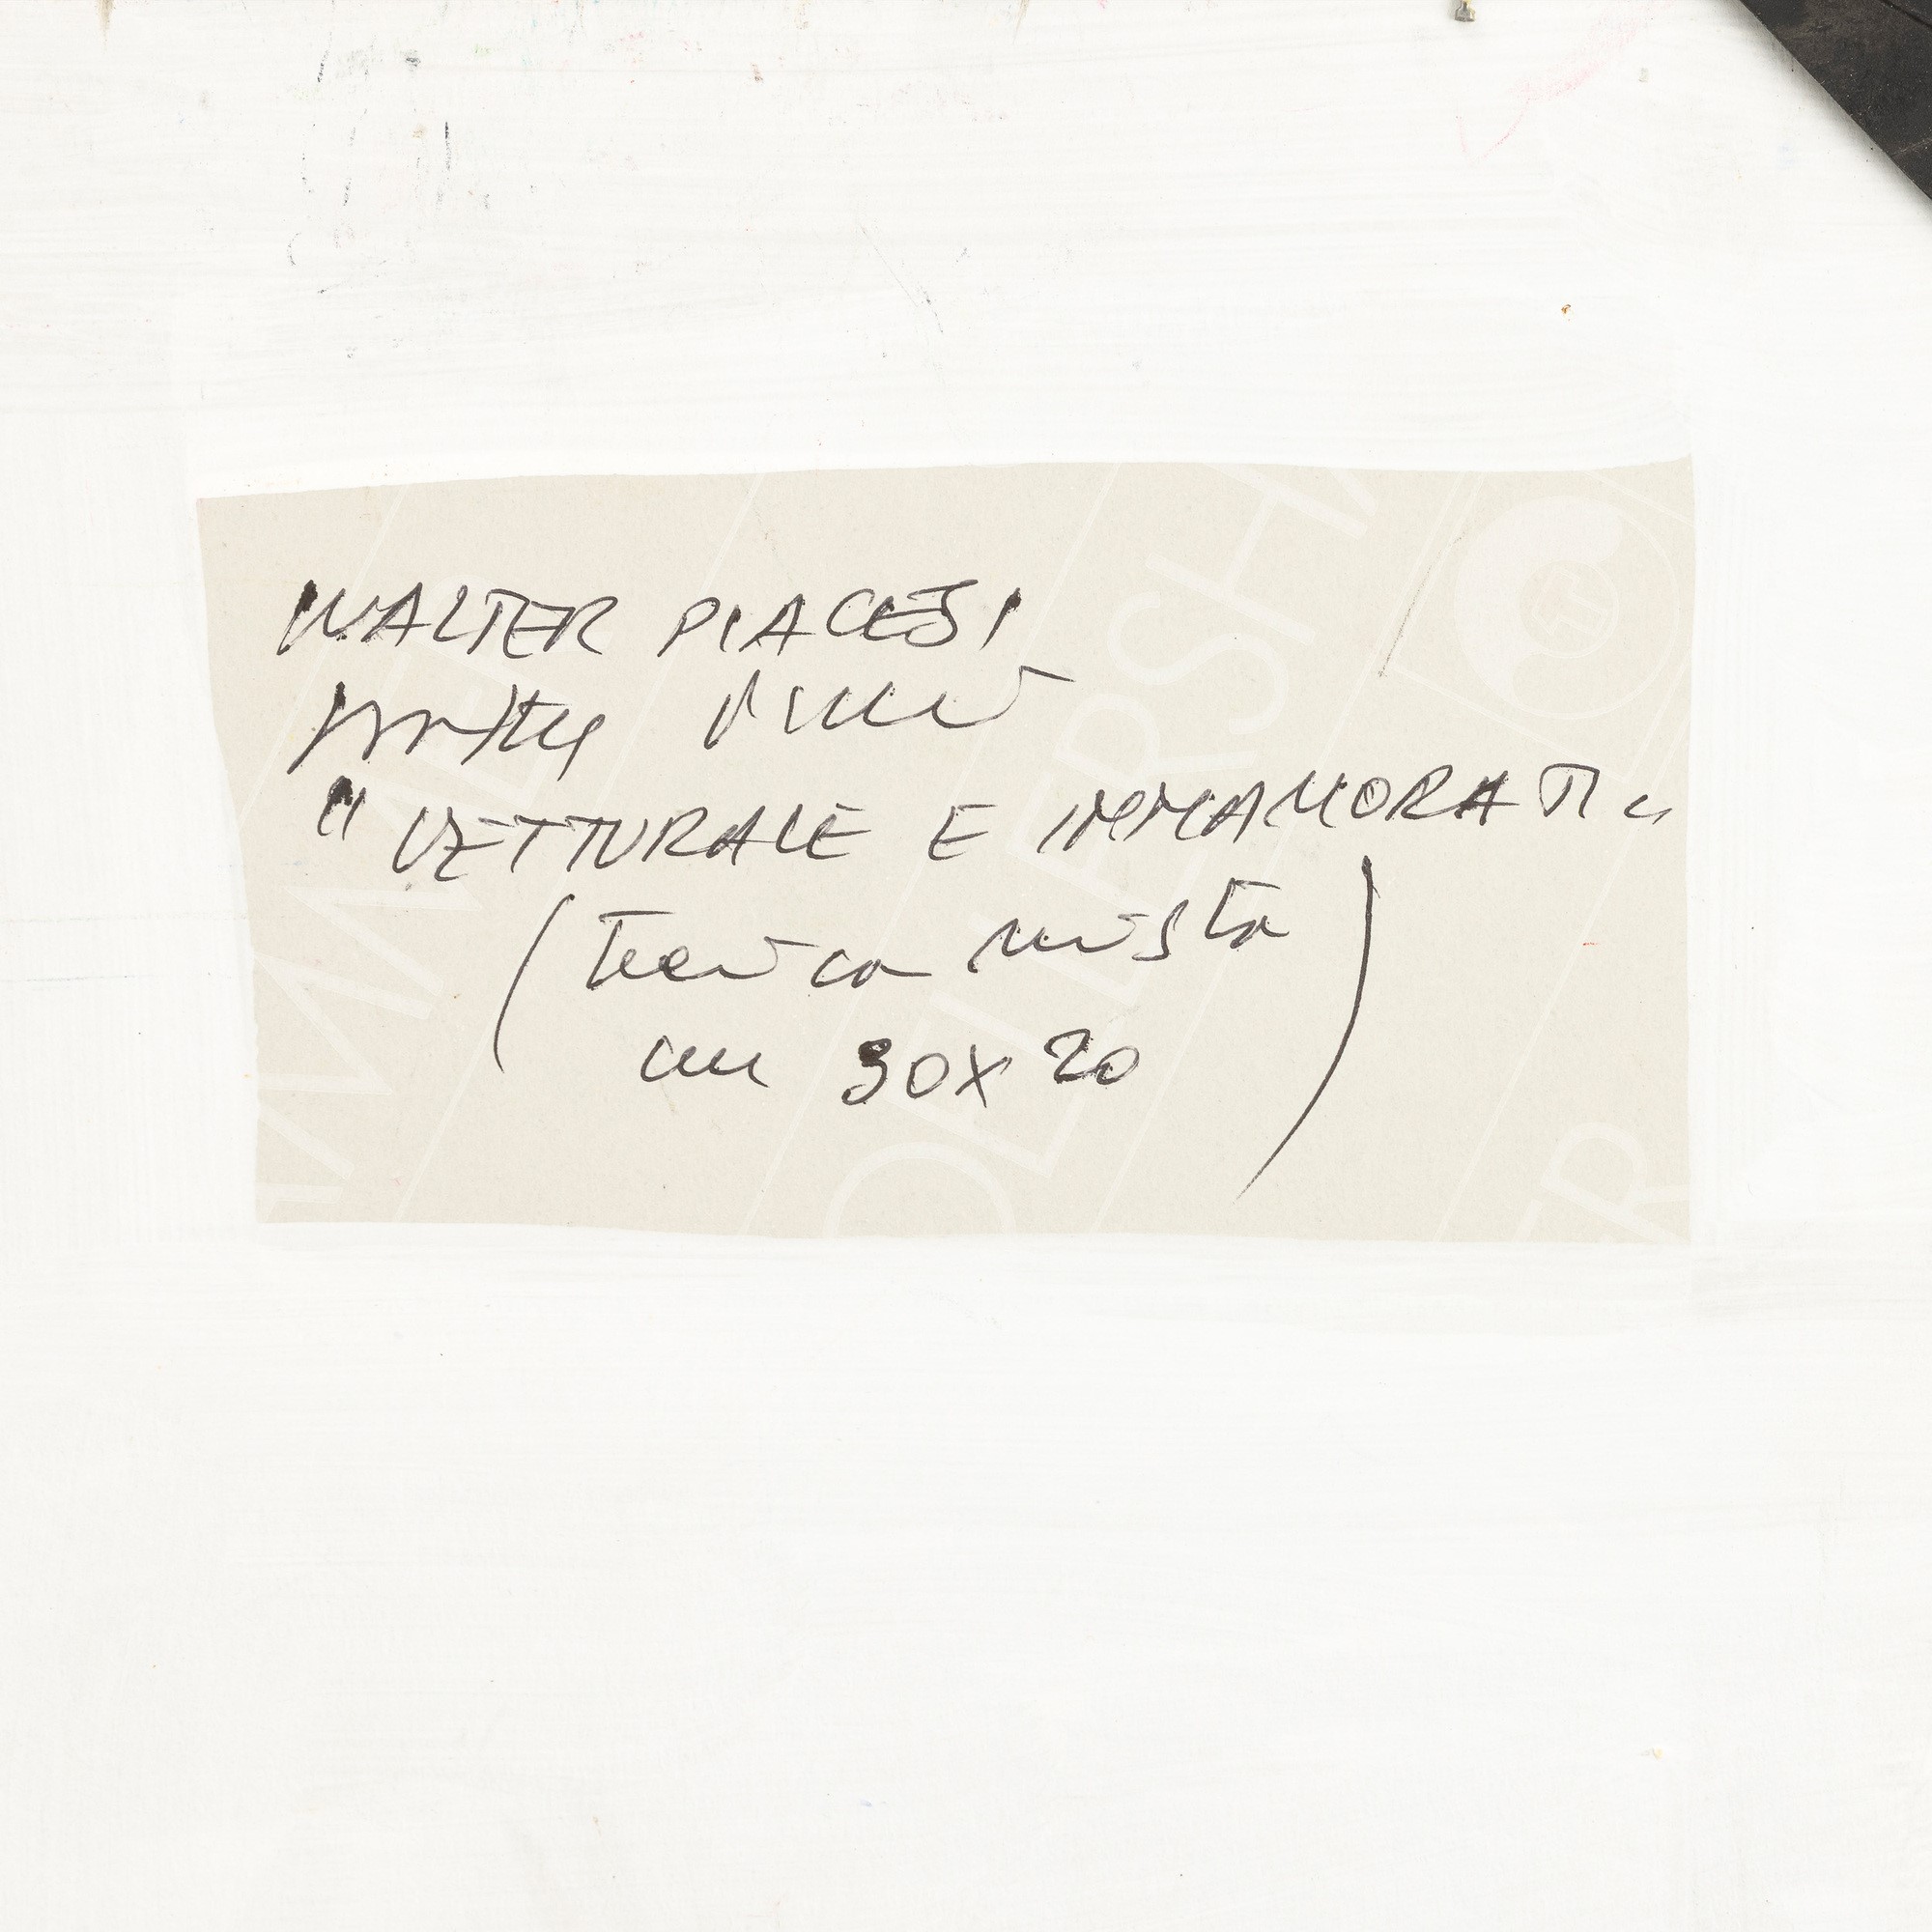 WALTER PIACESI
"VETTURALE E INNAMORATI"
(Tecnica mista
cm 30x20)